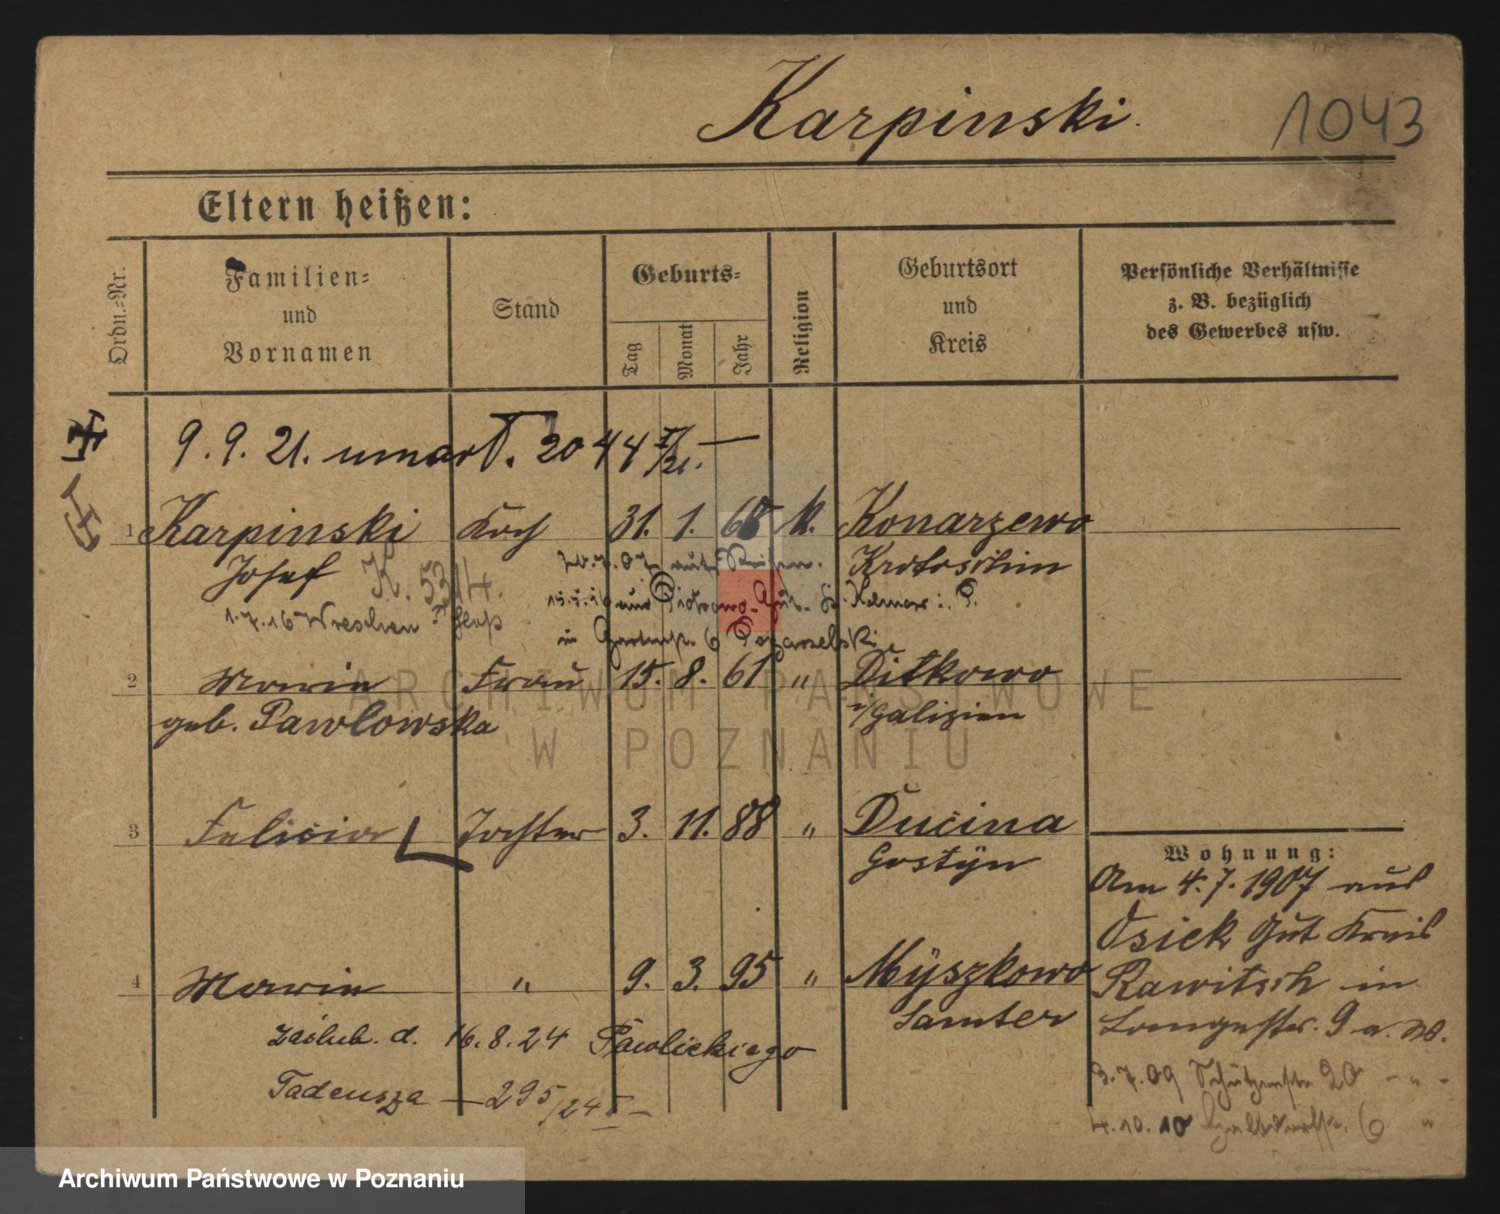 Karpinski
1043
Eltern heißen:
Ordn.-Nr.
Familien- und Vornamen
Stand
Geburts-
Tag
Monat
Jahr
Religion
Geburtsort und Kreis
Persönliche Verhältnisse z. B. bezüglich des Gewerbes usw.
9. 9. 21. umarł. 2044 I/21. —
1 Karpinski Koch 31. 1. 68 k. Konarzewo
Josef K. 5314. Krotoschin
1.7.16 Wreschen
in Gartenstr. 6 Pozarzelski
2 Maria Frau 15. 8. 61 " Ditkowo
geb. Pawlowska i/Galizien
3 Felicia Tochter 3. 11. 88 " Ducina
Gostÿn
4 Maria " 9. 3. 95 " Mÿszkowo
Samter
zaślub. d. 16.8.24 Pawlickiego
Tadeusza — 295/24 —
Wohnung:
Am 4.7.1907 aus
Osiek Gut Kreis
Rawitsch in
Langestr. 9 a. W.
3.7.09 Schützenstr 20 - " -
4.10.10 6 "
ARCHIWUM PAŃSTWOWE
W POZNANIU
Archiwum Państwowe w Poznaniu